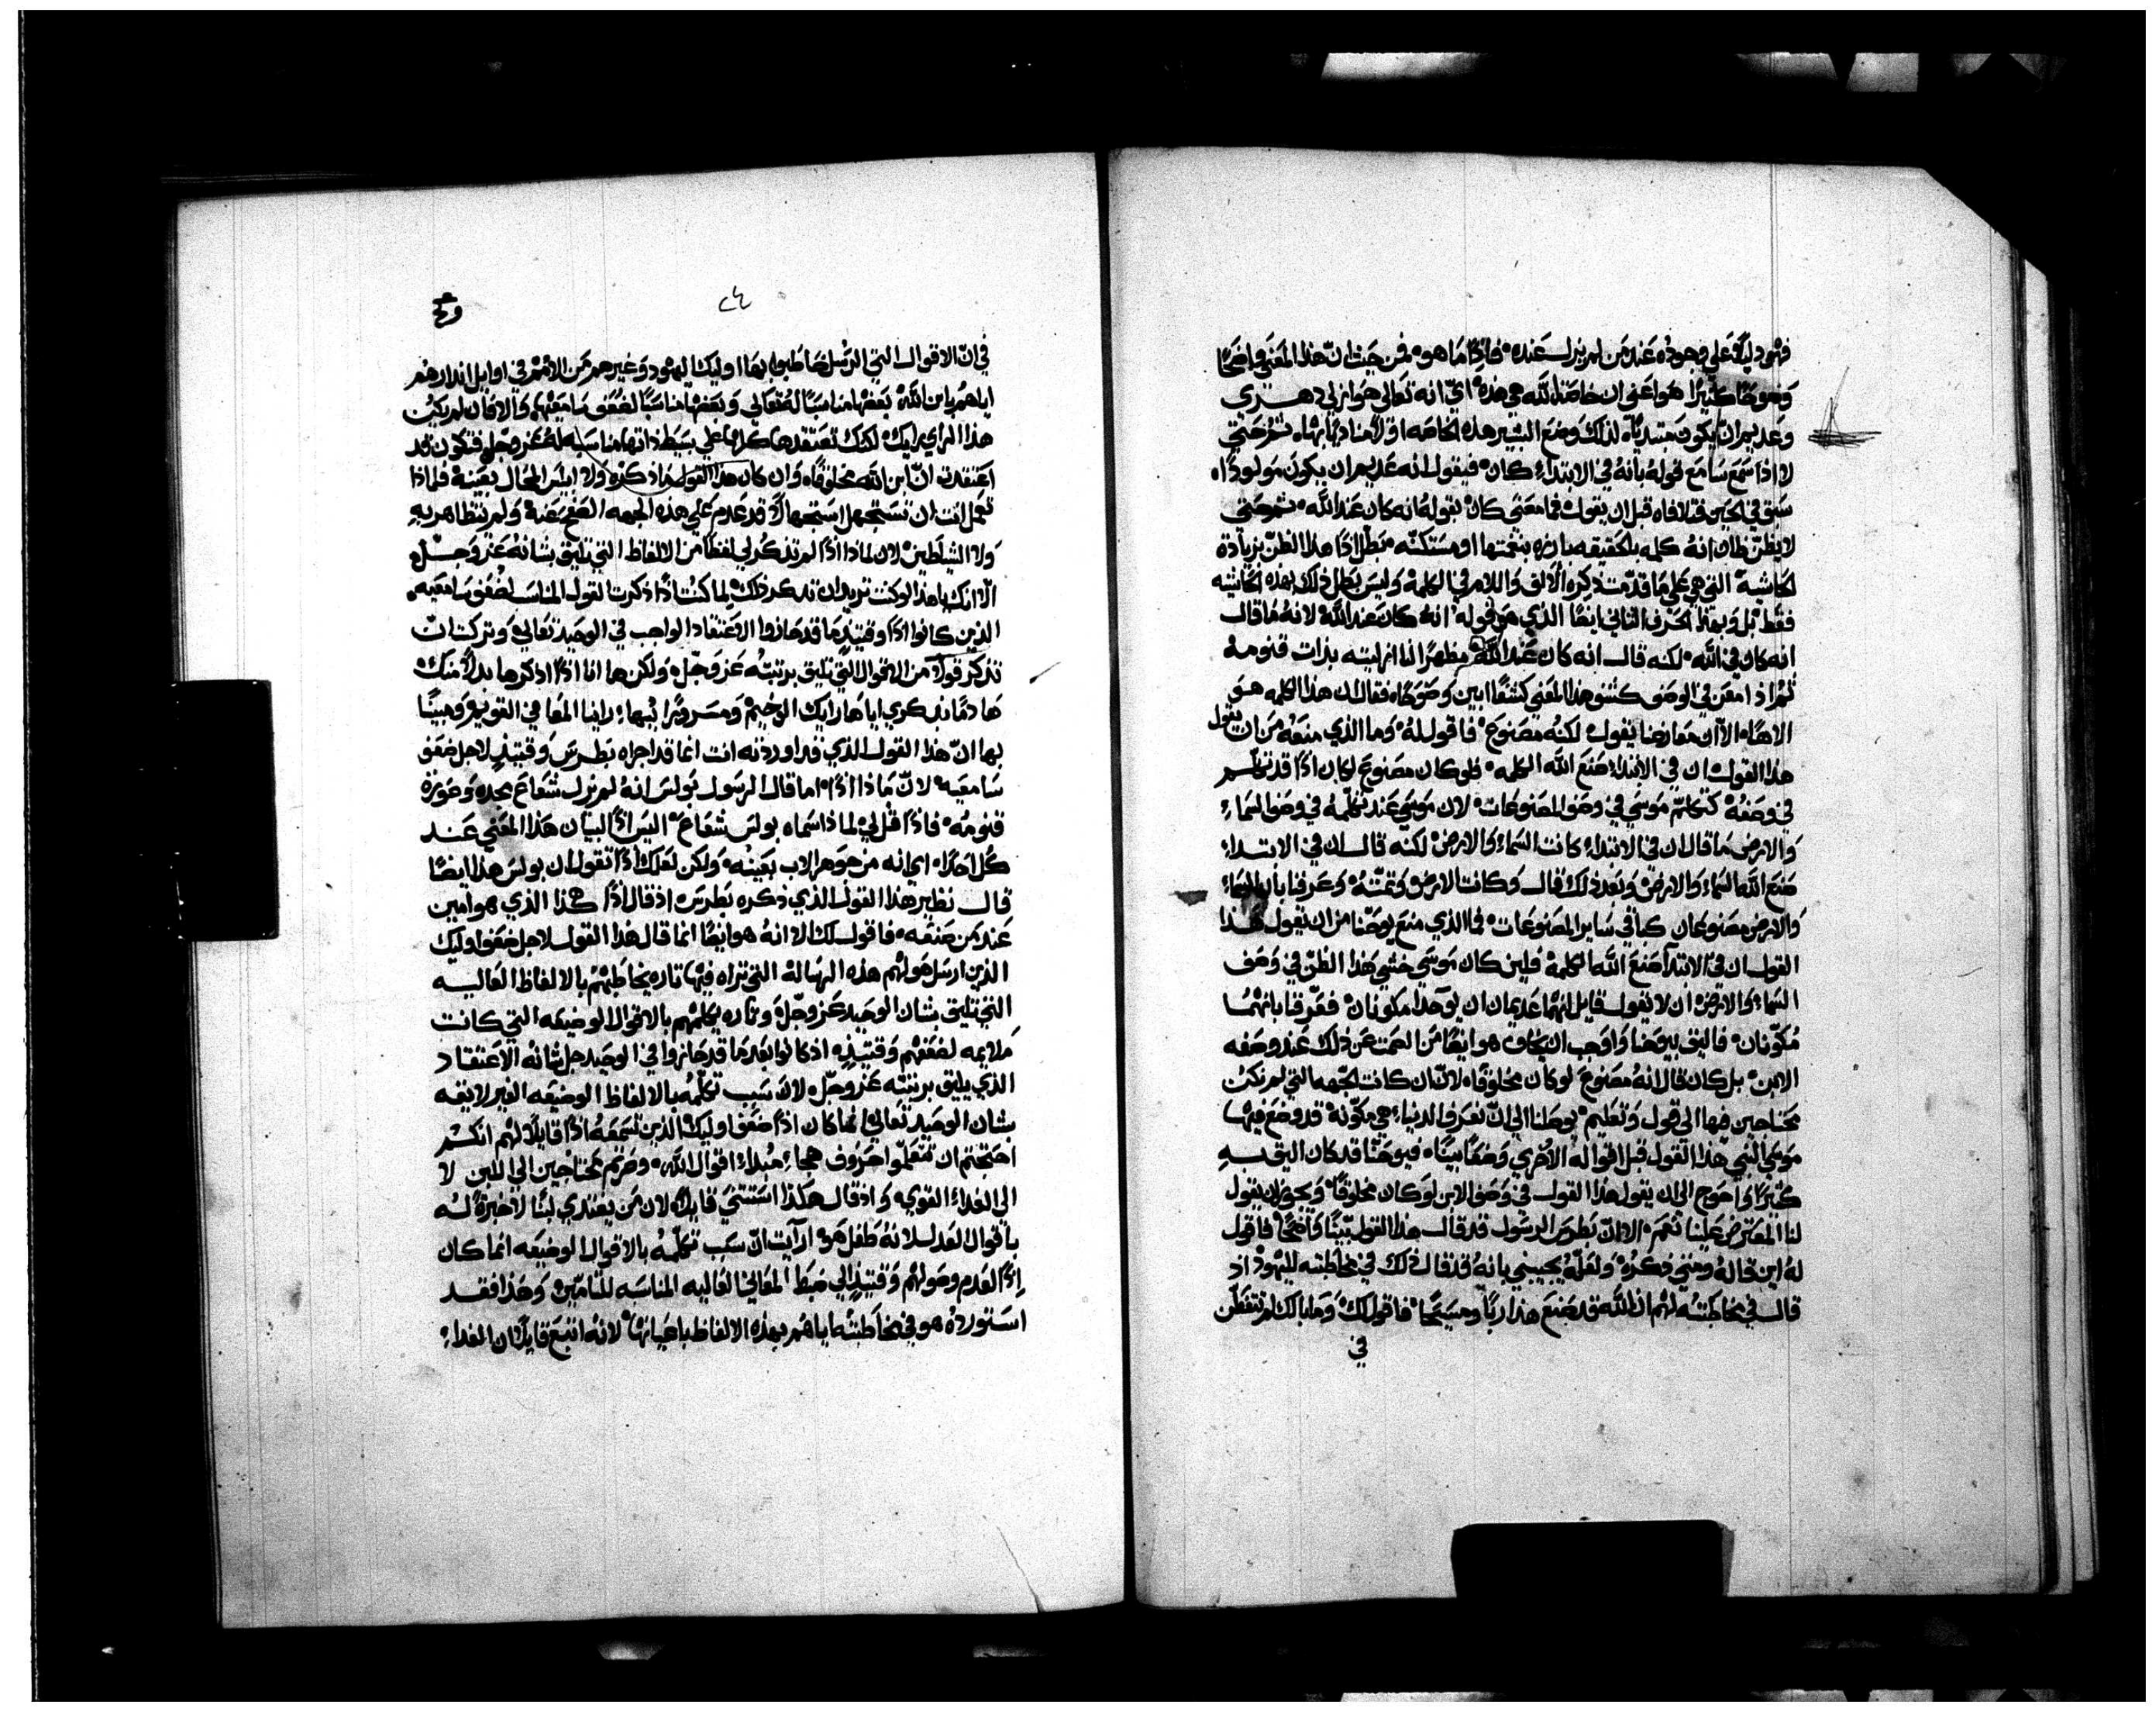 فهو دليلا علي وجوده عند من لم يزل عنده فاذا ما هو فمن حيث ان هذا المعني واضحا
وضوحا كثيرا هو اعني ان خاصة الله هي هذه اي انه تعالي هو ازلي دهري
وعديم ان يكون مبتديا لذلك وضع البشير هذه الخاصه اولا منادايا بها ثم حتي
لا اذا سمع سامع قوله بانه في الابتداء كان فيقول انه عديم ان يكون مولودا
سبق في الحين فتلافاه قبل ان يقول فما معني كان بقوله انه كان عند الله ثم حتي
لا يظن ظان انه كلمه بلحقيقه بارزه بنغمتها او مستكنه مبطل اذا هذا الظن بزيادة
لحاشية التي هي علي ما قدمت ذكره الالف واللام في الكلمة وليس يبطل ذلك بهذه الحاشيه
فقط بل وبهذا الحرف الثاني ايضا الذي هو قوله انه كان عند الله لانه ما قال
انه كان في الله لكنه قال انه كان عند الله مظهرا لنا ازليته بذات قنومه
ثم اذ امعن في الوصف كشف هذا المعني كشفا ابين وضوحا فقال ان هذا الكلمه هو
الاها الا ان معارضا يقول لكنه مصنوع فاقول له وما الذي منعه من ان يقول
هذا القول ان في الابتداء صنع الله الكلمه فلو كان مصنوع لكان اذا قد تكلم
في وصفه كتكلم موسي في وصف المصنوعات لان موسي عند تكلمه في وصف السماء
والارض ما قال ان في الابتداء كانت السماء والارض لكنه قال ان في الابتداء
صنع الله السماء والارض وبعد ذلك قال وكانت الارض وعرفنا بان السماء
والارض مصنوعان كباقي ساير المصنوعات فما الذي منع يوحنا من ان يقول هذا
القول ان في الابتدا صنع الله الكلمة فلين كان موسي خشي هذا الظن في وصف
السماء والارض ان لا يقول قايل انهما عديمان ان يوجدا مكونان فعرفنا بانهما
مكونان فاليق بيوحنا واوجب ان يخاف هو ايضا من الصمت عن ذلك عند وصفه
الابن بل كان قال انه مصنوع لو كان مخلوقا لان ان كانت الجهه التي لم نكن
محتاجين فيها الي قول وتعليم يوصلنا الي ان نعرف الدنيا هي مكونة قد وضع فيها
موسي النبي هذا القول قبل اقواله الاخري وضعا بينا فيوحنا قد كان اليق به
كثيرا واحوج الي ان يقول هذا القول في وصف الابن لو كان مخلوقا ويحق ان يقول
لنا المعترض علينا نعم الا ان بطرس الرسول قد قال هذا القول بينا واضحا فاقول
له اين قاله ومتي ذكره ولعله يجيبني بانه قد قال ذلك في مخاطبته لليهود اذ
قال في مخاطبته لهم ان الله قد صنع هذا ربا ومسيحا فاقول لك وما بالك لم تتفطن
في
في ان الاقوال التي الرسل خاطبوا بها اوليك اليهود وغيرهم من الامم في اوايل انذارهم
اياهم بابن الله بعضها مناسبا له تعالي وبعضها مناسبا لضعف سامعيها والا فان لم يكن
هذا الراي رايك لكنك تعتقدها كلها علي بسيط ذاتها مناسبه له عز وجل فتكون قد
اعتقدت ان ابن الله مخلوقا وان كان هذا القول ما ذكره ولا ابليس المحال بعينه فلماذا
تعمل انت ان تستجهل استجهالا قد عدم علي هذه الجهه الصفح عنه ولم تتظاهر به
ولا الشياطين لان لماذا اذا لم تذكر لي لفظا من الالفاظ التي تليق بشانه عز وجل
الا انك يا هذا لو كنت تريد ان تذكر ذلك لما كنت اذا ذكرت القول المناسب لضعف سامعيه
الذين كانوا اذا وقتيذ ما قد حازوا الاعتقاد الواجب في الوحيد تعالي وتركت ان
تذكر قولا من الاقوال التي تليق برتبته عز وجل ولكن ها انا اذا اذكرها بدلا منك
هادما بذكري اياها رايك الوخيم ومسرورا بها رانيا المعافي القويم ومبينا
بها ان هذا القول الذي قد اوردته انت انما قد اجراه بطرس وقتيذ لاجل ضعف
سامعيه لان ماذا اذا اما قال الرسول بولس انه لم يزل شعاع مجده وعوزة
قنومه فاذا قل لي لماذا سماه بولس شعاع اليس اذا لبيان هذا المعني عند
كل احدا اي انه من جوهر الاب بعينه ولكن لعلك اذا تقول ان بولس هذا ايضا
قال نظير هذا القول الذي ذكره بطرس اذ قال اذا هذا الذي هو امين
عند من صنعه فاقول لك الا انه هو ايضا انما قال هذا القول لاجل ضعف اوليك
الذين ارسل هو لهم هذه الرساله التي تراه فيها تاره يخاطبهم بالالفاظ العاليه
التي تليق بشان الوحيد عز وجل وتاره يكلمهم بالاقوال الوضيعه التي كانت
ملايمه لضعفهم وقتيذ اذ كانوا بعد ما قد حازوا في الوحيد جل شانه الاعتقاد
الذي يليق برتبته عز وجل لان سبب تكلمه بالالفاظ الوضيعه الغير لايقه
بشان الوحيد تعالي انما كان اذا ضعف اوليك الذين تسمعه اذا قايلا لهم انكم
احتجتم ان تتعلموا حروف هجاء مبداء اقوال الله وصرتم محتاجين الي اللبن لا
الي الغداء القوي واذ قال هكذا استتني قايلا لان من يغتدي لبنا لا خبرة له
باقوال العدل لانه طفل هو ارآيت ان سبب تكلمه بالاقوال الوضيعه انما كان
اذا لعدم وصولهم وقتيذ الي ضبط المعاني العاليه المناسبه للتامين وهذا فقد
استورده هو في مخاطبته اياهم بهذه الالفاظ باعيانها لانه اتبع قايلا ان الغداء